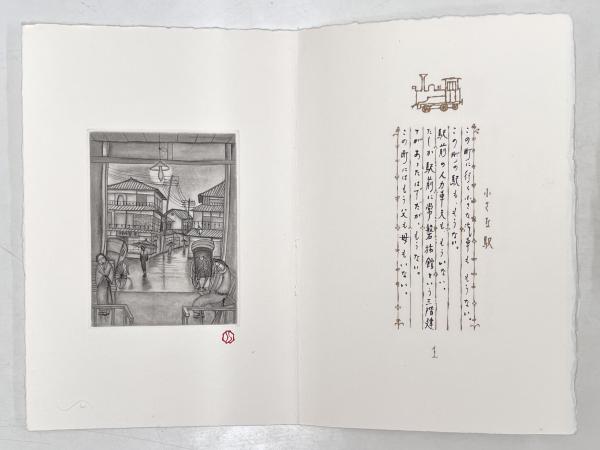 小さな駅
この町に行く小さな汽車も もうない。
この町の駅も もうない。
駅前の人力車夫も もういない。
たしか 駅前に常盤旅館という三階建
てがあったはずだが、もうない。
この町にはもう 父も母も いない。
1